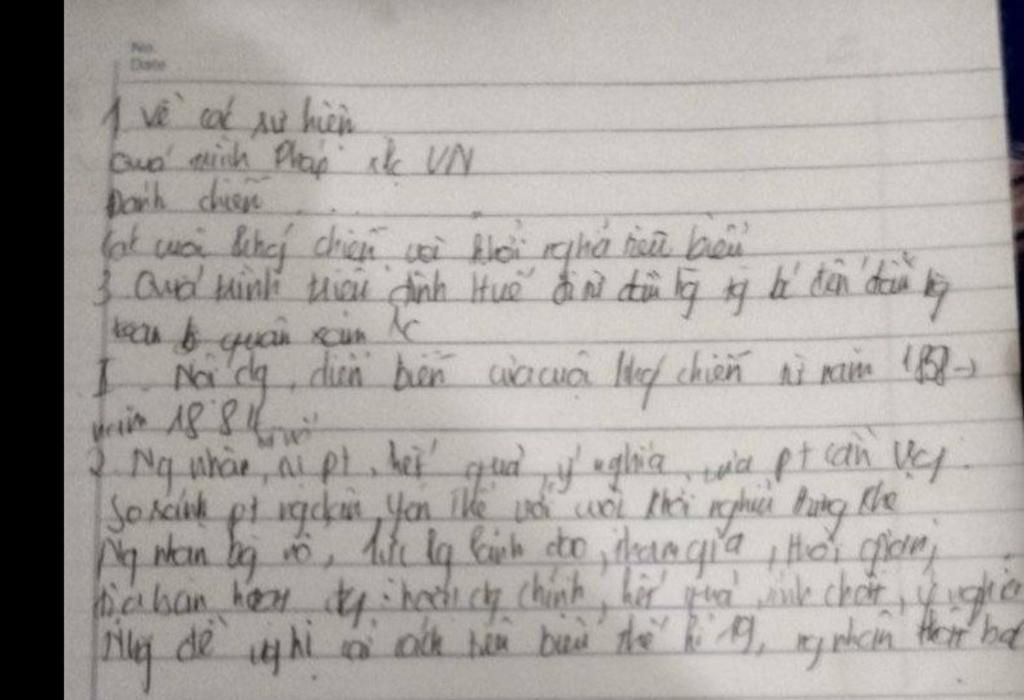 No.
Date
1 Về các sự kiện
Quá trình Pháp xlc VN
Đánh chiếm
Các cuộc khg chiến với khởi nghĩa tiêu biểu
3 Quá trình triều đình Huế đi từ đầu hg bộ đến đầu hg
toàn bộ quân xâm lc
I Nội dg, diễn biến của cuộc khg chiến từ năm 1858 →
năm 1884
2 Ng nhân, pt, kết quả, ý nghĩa của pt cần Vg
So sánh pt ndân Yên Thế với cuộc khởi nghĩa Hưng Khê
Ng nhân bg nổ, lực lg lãnh đạo, tham gia, thời gian,
địa bàn hoạt dg, chính, kết quả, tính chất, ý nghĩa
Nhg đề nghị cải cách tiêu biểu thế kỉ 19, ng nhân thất bại